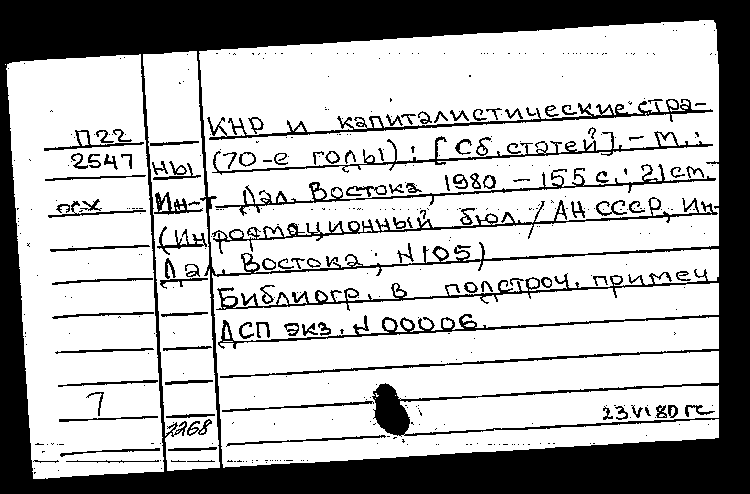 П22
2547
КНР и капиталистические стра-
ны (70-е годы) : [Сб. статей]. - М. :
Ин-т Дал. Востока, 1980. - 155 с. ; 21 см. -
(Информационный бюл. / АН СССР, Ин-
Дал. Востока ; N 105)
Библиогр. в подстроч. примеч.
ДСП экз. N 00006.
7
2268
23 VI 80 гс